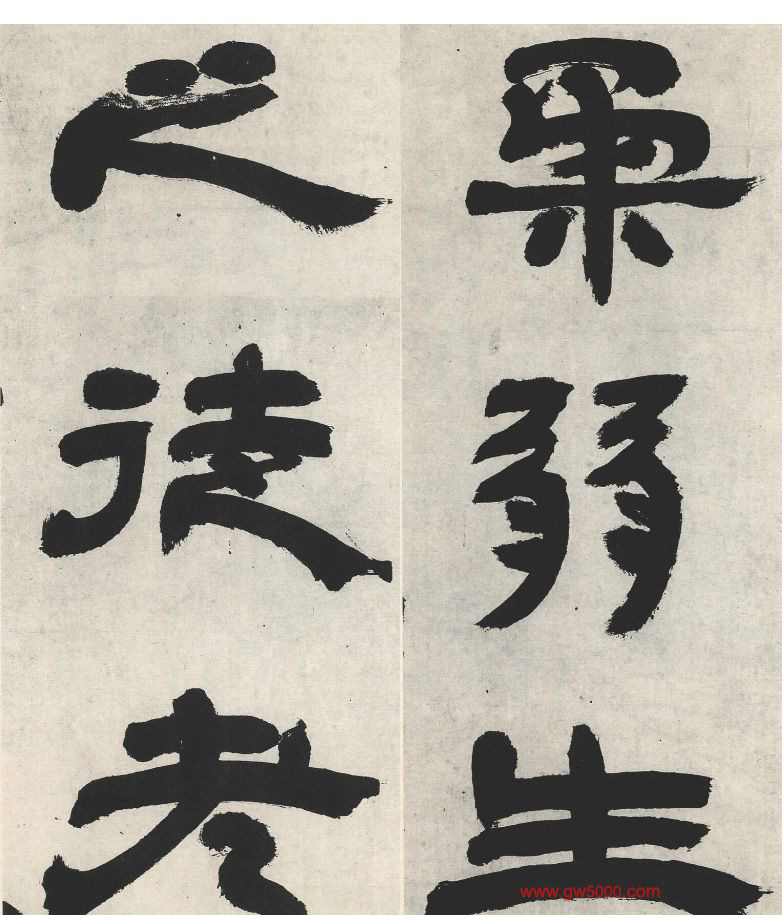 柔弱生
之徒老
www.gw5000.com